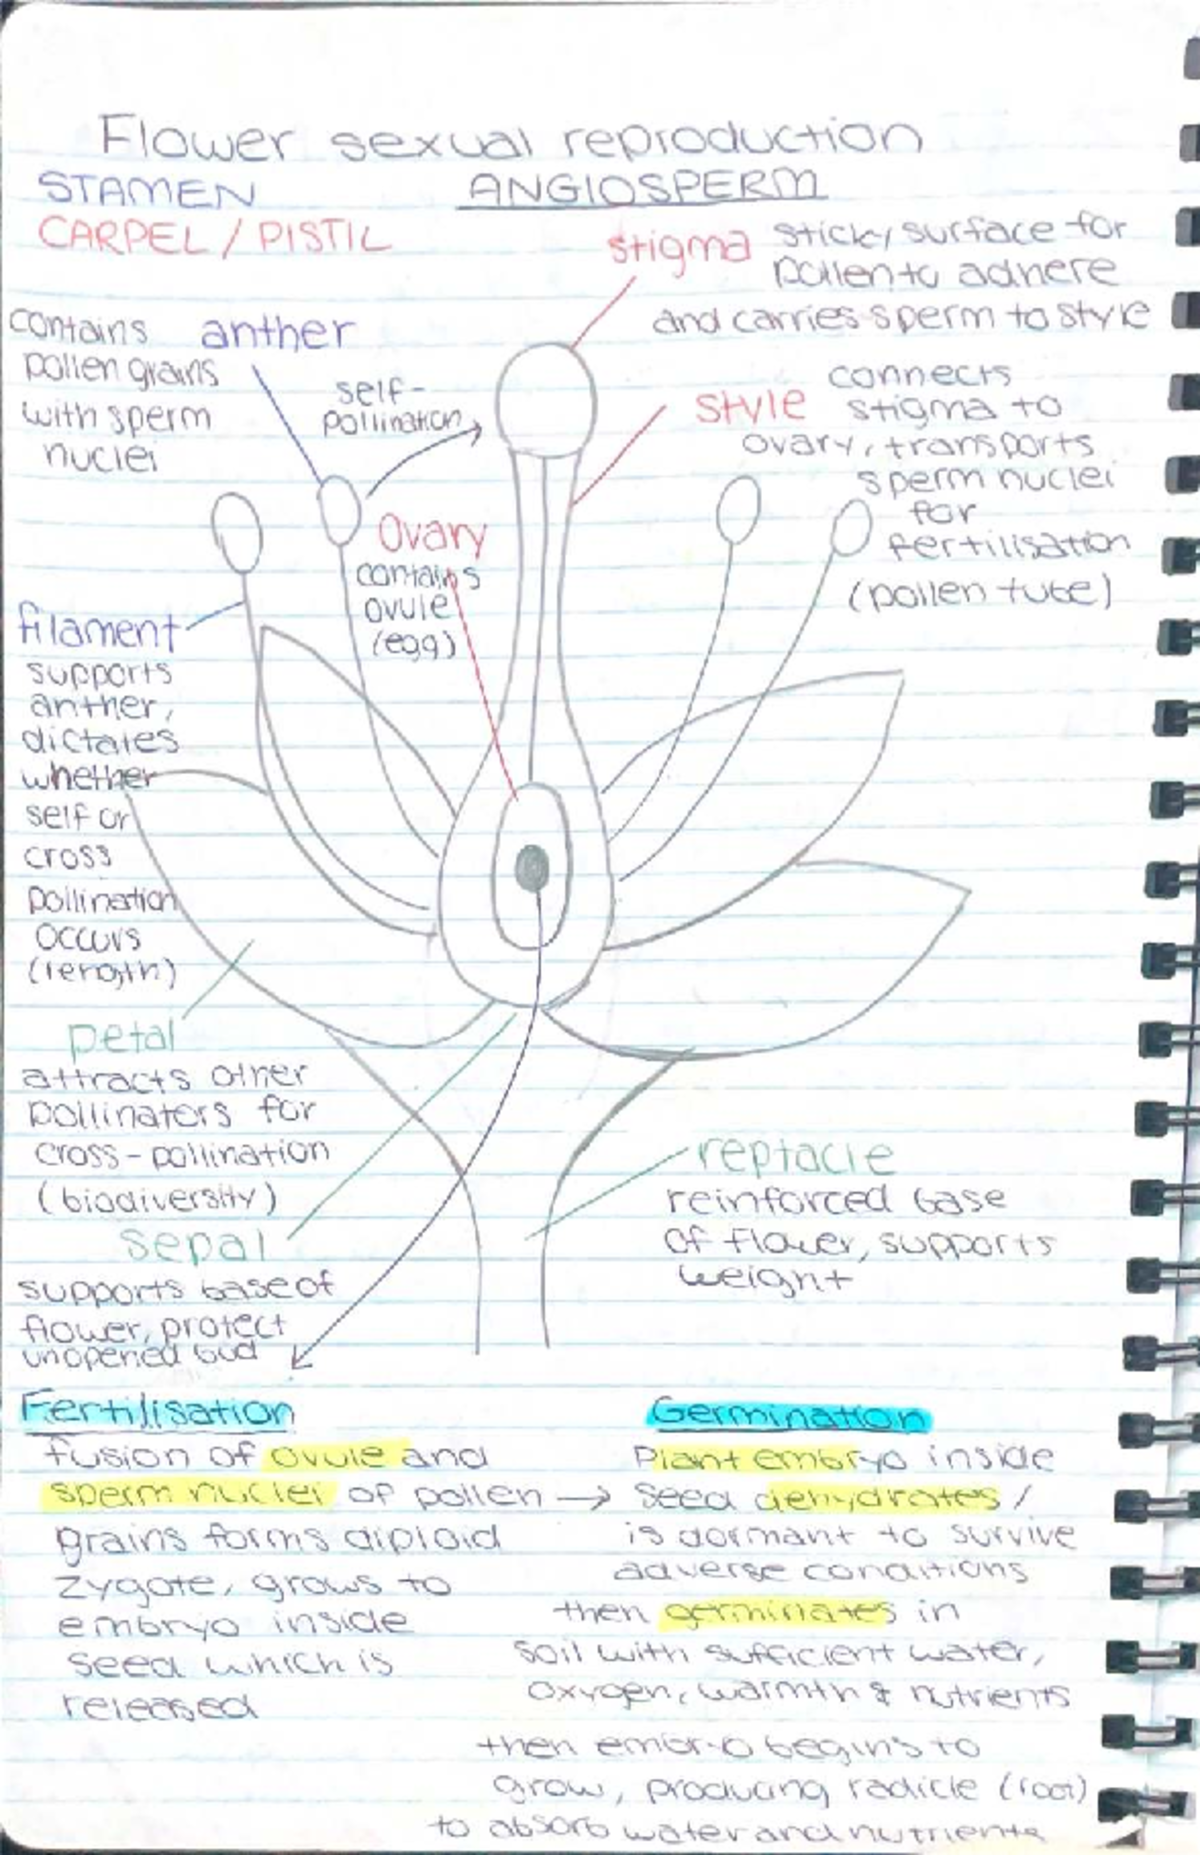 Flower sexual reproduction
STAMEN
ANGIOSPERM
CARPEL / PISTIL
stigma
sticky surface for
pollen to adhere
and carries sperm to style
contains
pollen grains
with sperm
nuclei
anther
self-
pollination
style
connects
stigma to
ovary, transports
sperm nuclei
for
fertilisation
(pollen tube)
Ovary
contains
ovule
(egg)
filament
supports
anther,
dictates
whether
self or
cross
pollination
occurs
(length)
petal
attracts other
pollinators for
cross-pollination
(biodiversity)
sepal
supports base of
flower, protect
unopened bud
reptacle
reinforced base
of flower, supports
weight
Fertilisation
fusion of ovule and
sperm nuclei of pollen →
grains forms diploid
zygote, grows to
embryo inside
seed which is
released
Germination
Plant embryo inside
seed dehydrates /
is dormant to survive
adverse conditions
then germinates in
soil with sufficient water,
oxygen, warmth & nutrients
then embryo begins to
grow, producing radicle (root)
to absorb water and nutrients